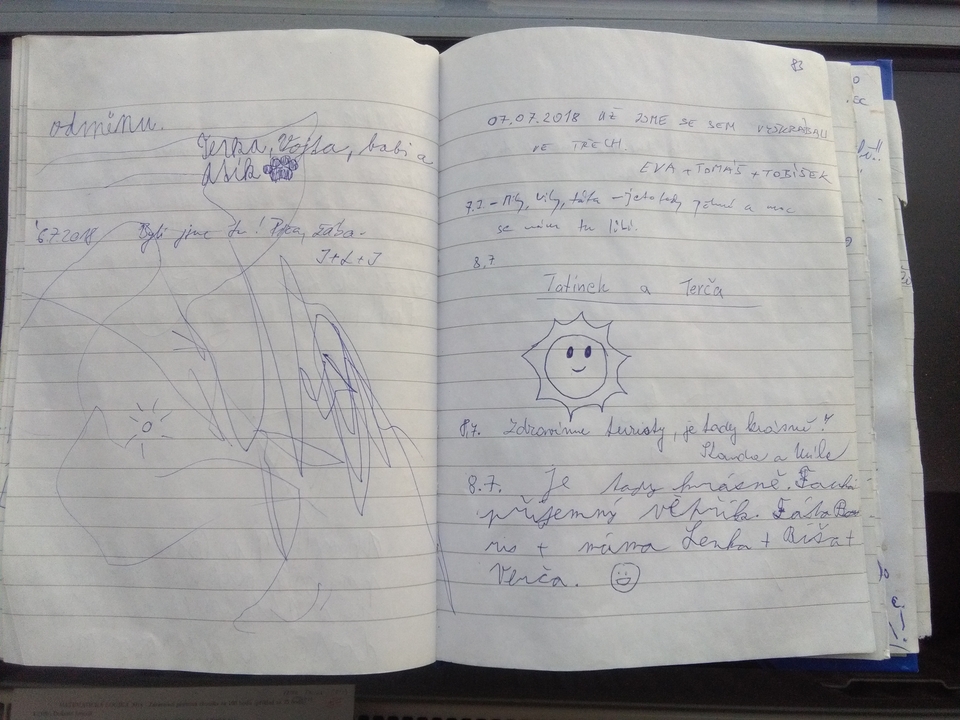 odměnu.
Terka, Vojta, babi a
6.7.2018 Byli jsme tu!
J+L+J
83
07.07.2018 AŽ JSME SE SEM VYŠKRÁBALI
VE TŘECH.
EVA + TOMÁŠ + TOBÍŠEK
7.7 - táta - je to tady a moc
se nám tu líbí.
8.7
Tatínek a Terča
8.7. Zdravíme turisty, je tady krásně!
Standa a
8.7. Je tady krásně. Fouká
příjemný větřík. Táta Bo-
ris + máma Lenka + Ríša +
Verča.